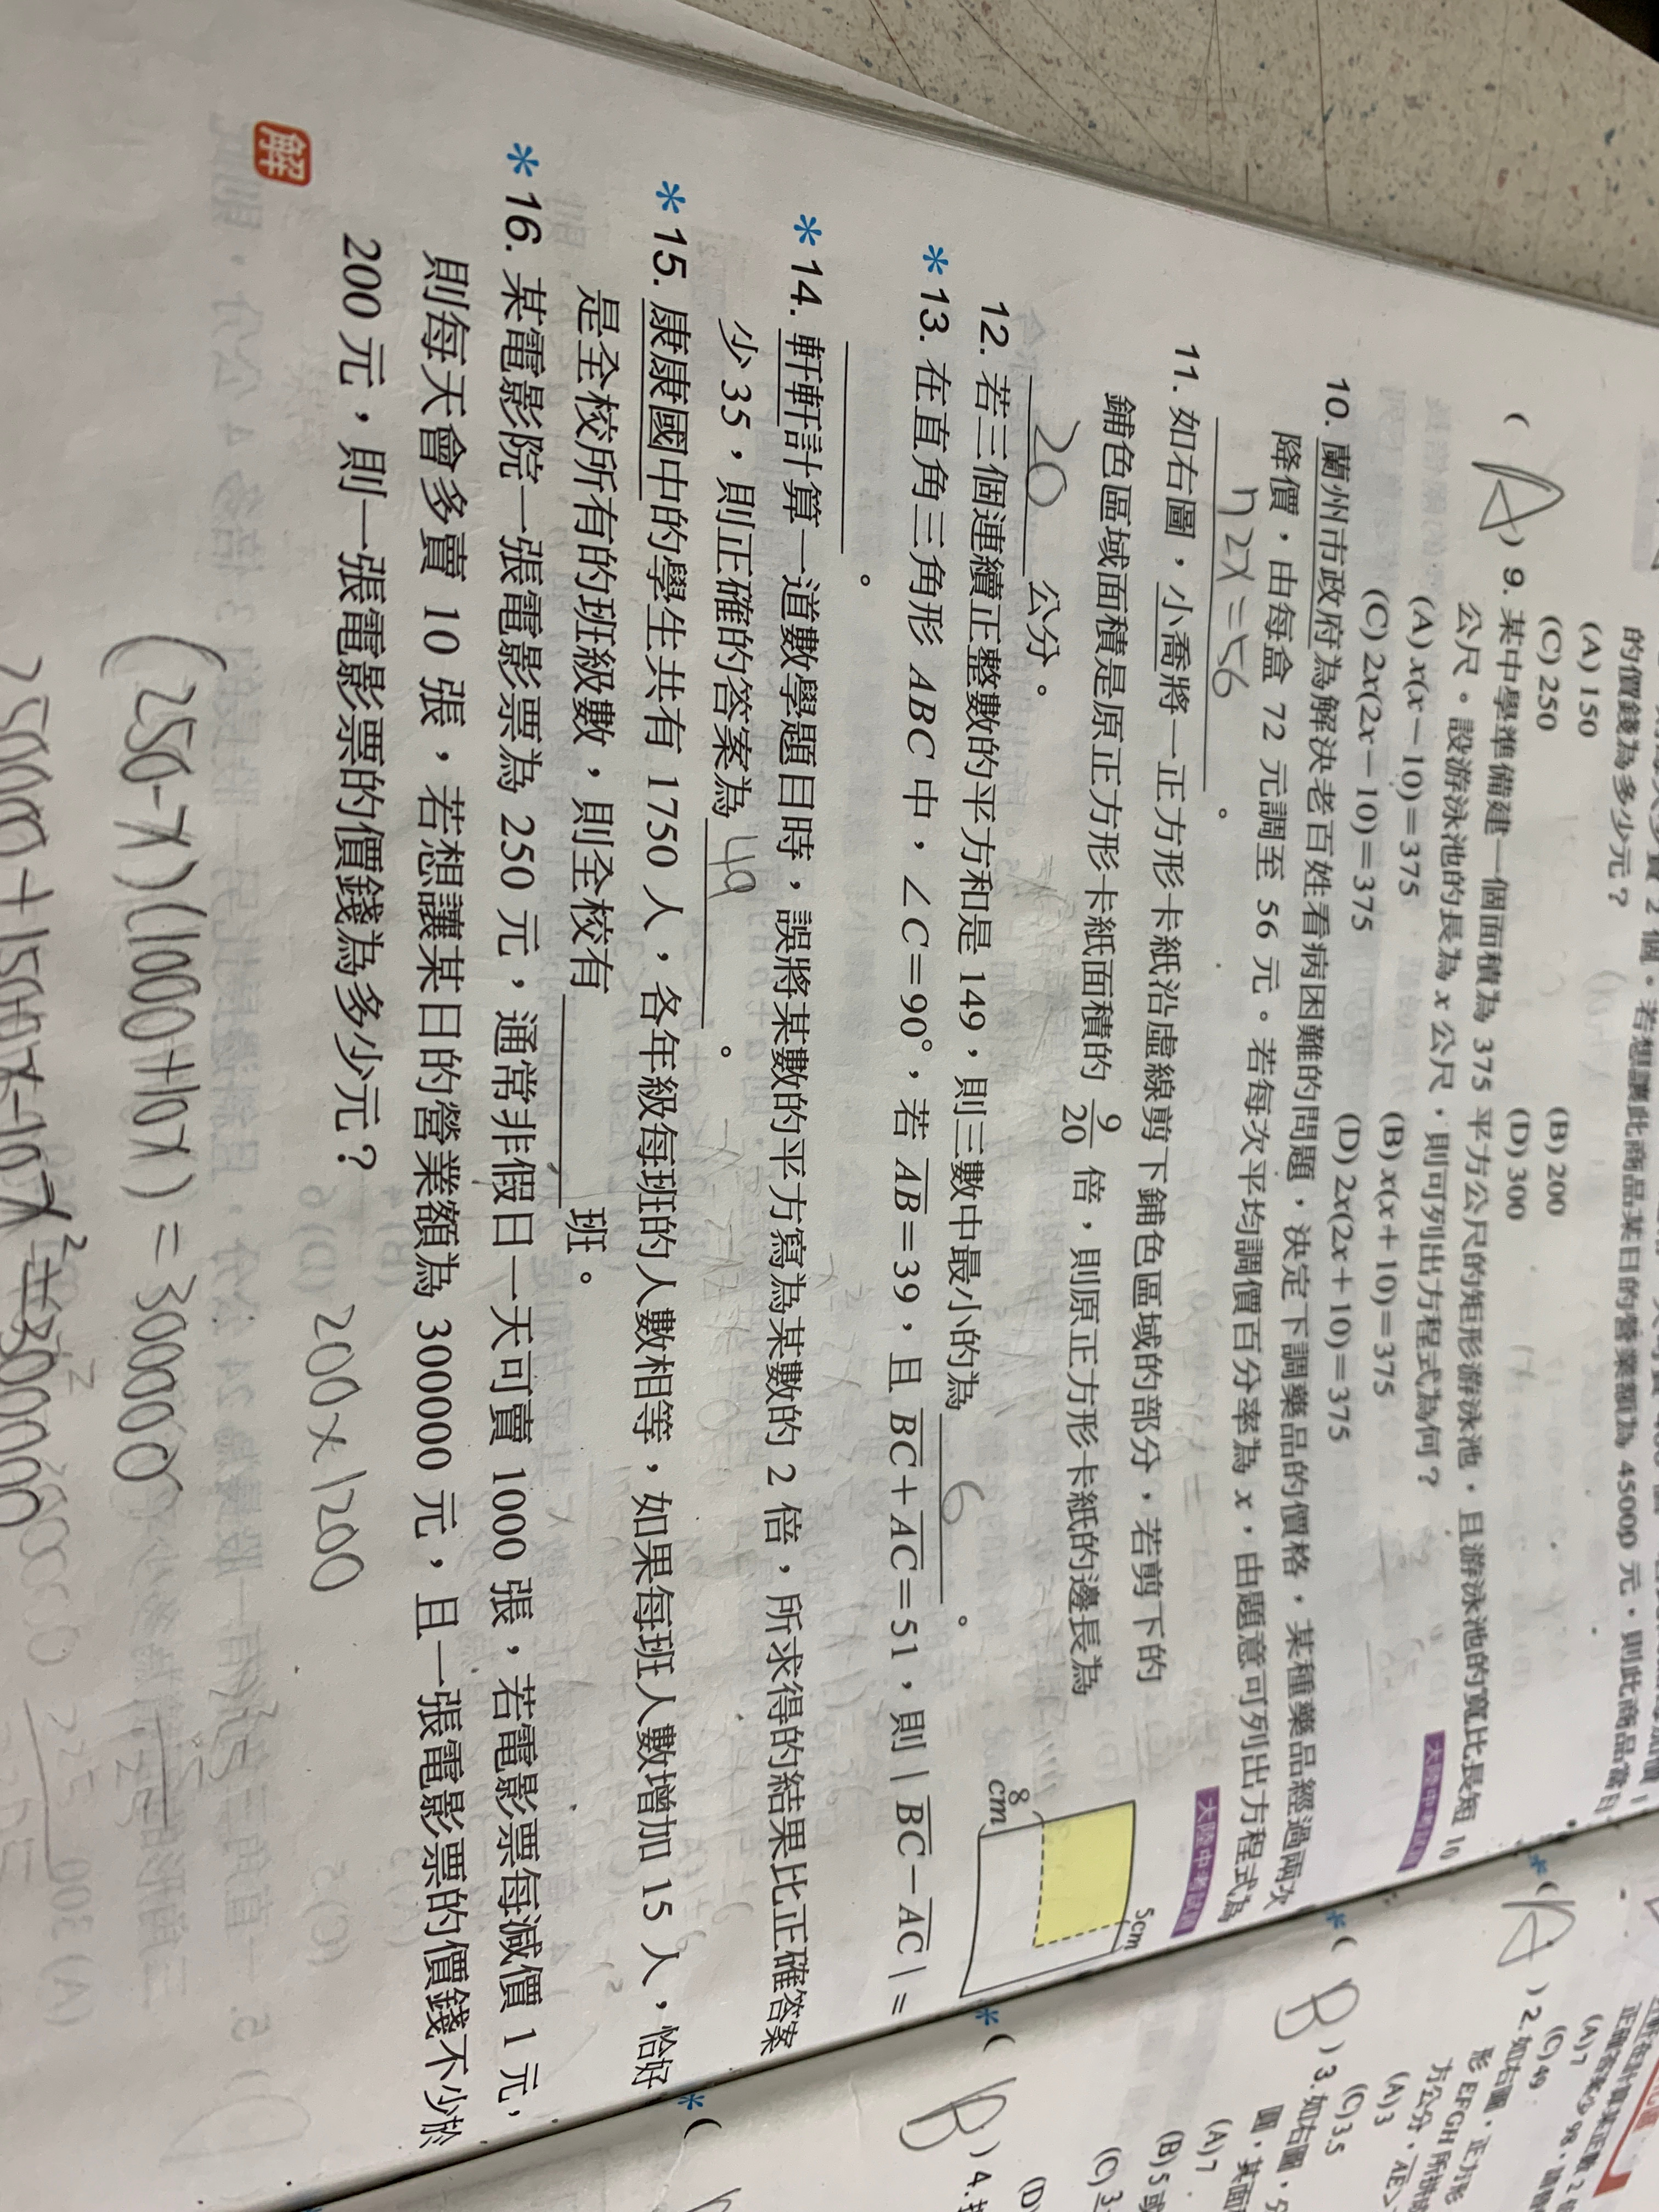 的價錢為多少元?
(A) 150 (B) 200
(C) 250 (D) 300
( A ) 9. 某中學準備建一個面積為 375 平方公尺的矩形游泳池,且游泳池的寬比長短 10
公尺。設游泳池的長為 x 公尺,則可列出方程式為何? 大陸中考試題
(A) x(x－10)＝375 (B) x(x＋10)＝375
(C) 2x(2x－10)＝375 (D) 2x(2x＋10)＝375
10. 蘭州市政府為解決老百姓看病困難的問題,決定下調藥品的價格,某種藥品經過兩次
降價,由每盒 72 元調至 56 元。若每次平均調價百分率為 x,由題意可列出方程式為
72x=56 。 大陸中考試題
11. 如右圖,小喬將一正方形卡紙沿虛線剪下鋪色區域的部分,若剪下的
鋪色區域面積是原正方形卡紙面積的 9/20 倍,則原正方形卡紙的邊長為
20 公分。
5cm
8
cm
12. 若三個連續正整數的平方和是 149,則三數中最小的為 6 。
*13. 在直角三角形 ABC 中,∠C＝90°,若 AB＝39,且 BC＋AC＝51,則 | BC－AC | ＝
。
*14. 軒軒計算一道數學題目時,誤將某數的平方寫為某數的 2 倍,所求得的結果比正確答案
少 35,則正確的答案為 49 。
*15. 康康國中的學生共有 1750 人,各年級每班的人數相等,如果每班人數增加 15 人,恰好
是全校所有的班級數,則全校有 班。
*16. 某電影院一張電影票為 250 元,通常非假日一天可賣 1000 張,若電影票每減價 1 元,
則每天會多賣 10 張,若想讓某日的營業額為 300000 元,且一張電影票的價錢不少於
200 元,則一張電影票的價錢為多少元?
解
200×1200
(250-x)(1000+10x)=300000
( A ) 2. 如右圖,正方形
形 EFGH 所
(A) 3
(C) 3.5
( B ) 3. 如右圖,
(A) 7
(B) 5 或
( B ) 4.
(D)